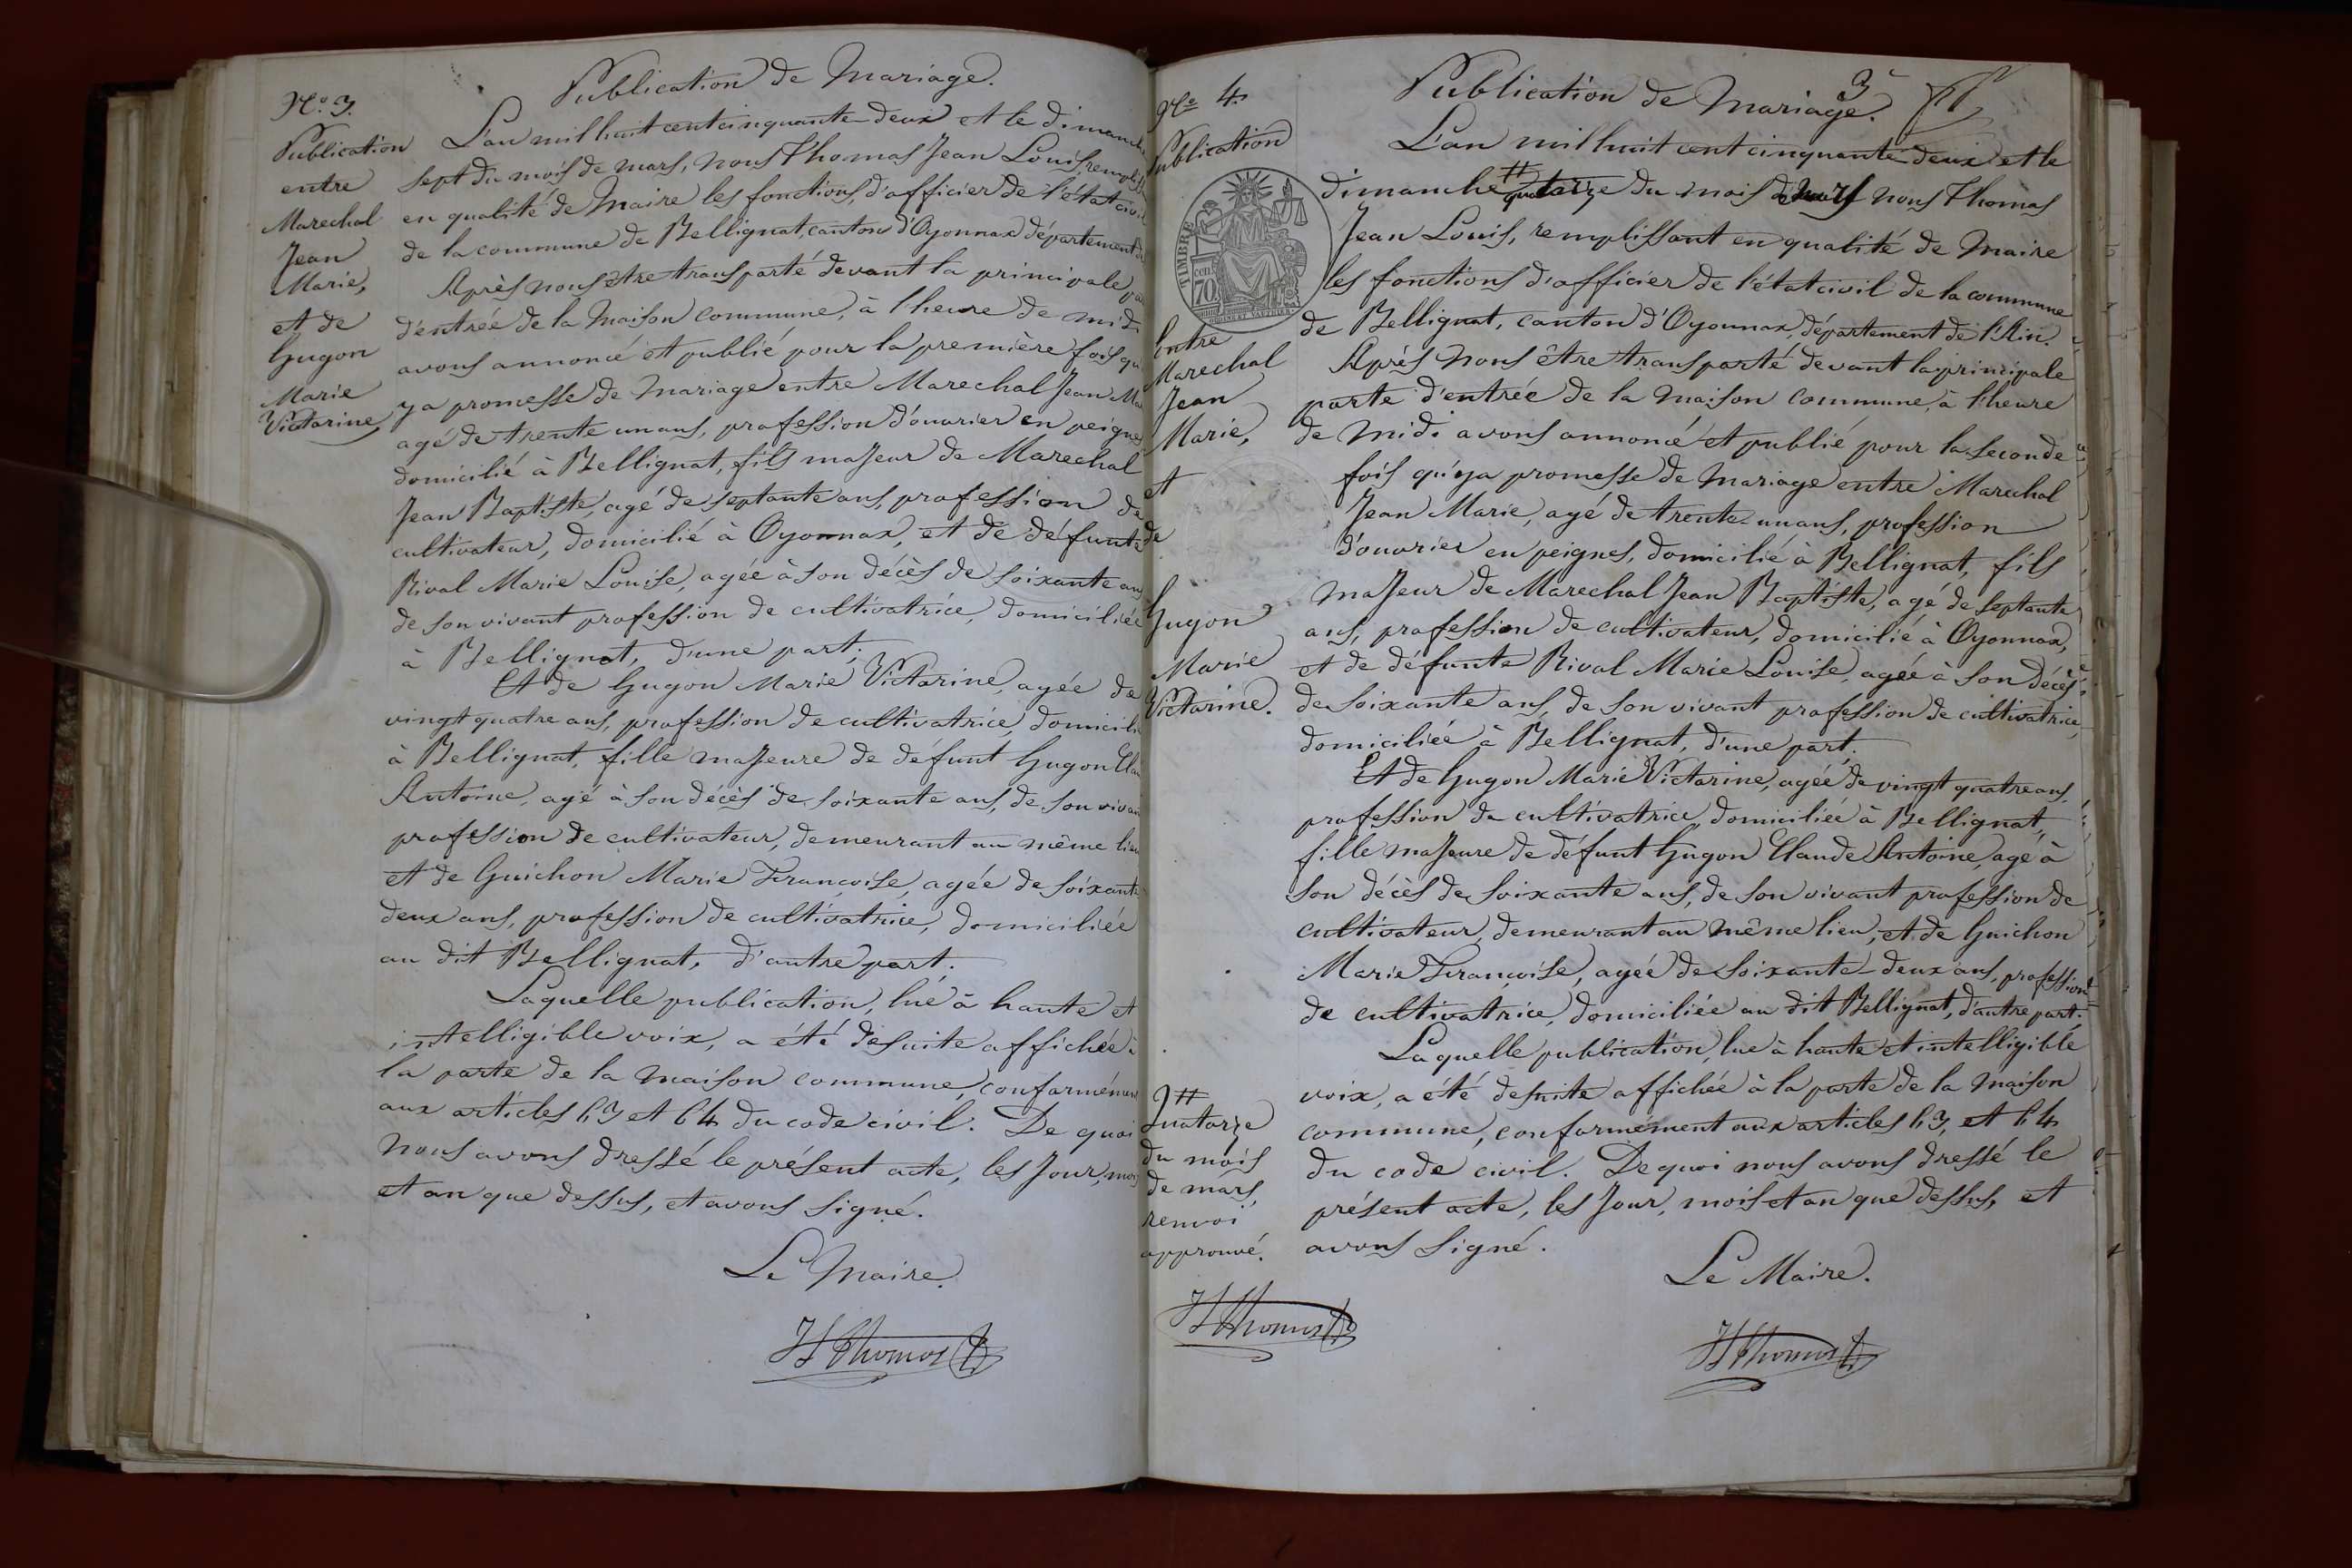 Publication de Mariage.
N.o 3.
Publication
entre
Marechal
Jean
Marie,
et de
Gugon
Marie
Victorine
L'an mil huit cent cinquante deux et le dimanche
sept du mois de mars, nous Thomas Jean Louis,
en qualité de Maire les fonctions, d'officier de l'état civil
de la commune de Bellignat, canton d'Oyonnax département
Après nous être transporté devant la principale
d'entrée de la Maison commune, à l'heure de midi
avons annoncé et publié pour la première fois qu
y a promesse de mariage entre Marechal Jean Ma
agé de trente un ans, profession d'ouvrier en peignes
domicilié à Bellignat, fils majeur de Marechal
Jean Baptiste, agé de septante ans, profession de
cultivateur, domicilié à Oyonnax, et de défunte
Rival Marie Louise, agée à son décès de soixante ans
de son vivant profession de cultivatrice, domiciliée
à Bellignat, d'une part;
Et de Gugon Marie Victorine, agée de
vingt quatre ans, profession de cultivatrice, domicili
à Bellignat, fille majeure de défunt Gugon Clau
Antoine, agé à son décès de soixante ans, de son viva
profession de cultivateur, demeurant au même lieu
et de Guichon Marie Françoise, agée de soixante
deux ans, profession de cultivatrice, domiciliée
au dit Bellignat, d'autre part.
Laquelle publication, lue à haute et
intelligible voix, a été desuite affichée à
la porte de la Maison commune, conformément
aux articles 63 et 64 du code civil. De quoi
nous avons dressé le présent acte, les jour, mois
et an que dessus, et avons signé.
Le Maire.
JLThomas
3
Publication de Mariage.
N.o 4.
Publication
TIMBRE
70
cen
Entre
Marechal
Jean
Marie,
et
de
Gugon
Marie
Victorine.
L'an mil huit cent cinquante deux et le
dimanche # quatorze du mois de mars nous Thomas
Jean Louis, remplissant en qualité de Maire
les fonctions d'officier de l'état civil de la commune
de Bellignat, canton d'Oyonnax, département de l'Ain.
Après nous être transporté devant la principale
porte d'entrée de la Maison commune, à l'heure
de midi avons annoncé et publié pour la seconde
fois qu'y a promesse de mariage entre Marechal
Jean Marie, agé de trente un ans, profession
d'ouvrier en peignes, domicilié à Bellignat, fils
majeur de Marechal Jean Baptiste, agé de septante
ans, profession de cultivateur, domicilié à Oyonnax,
et de défunte Rival Marie Louise, agée à son décès
de soixante ans, de son vivant profession de cultivatrice,
domiciliée à Bellignat, d'une part;
Et de Gugon Marie Victorine, agée de vingt quatre ans,
profession de cultivatrice, domiciliée à Bellignat,
fille majeure de défunt Gugon Claude Antoine, agé à
son décès de soixante ans, de son vivant profession de
cultivateur, demeurant au même lieu, et de Guichon
Marie Françoise, agée de soixante-deux ans, profession
de cultivatrice, domiciliée au dit Bellignat, d'autre part.
Laquelle publication, lue à haute et intelligible
voix, a été desuite affichée à la porte de la Maison
commune, conformément aux articles 63, et 64
du code civil. De quoi nous avons dressé le
présent acte, les jour, mois et an que dessus, et
avons signé.
Le Maire.
JLThomas
#
Quatorze
du mois
de mars,
renvoi
approuvé.
JLThomas